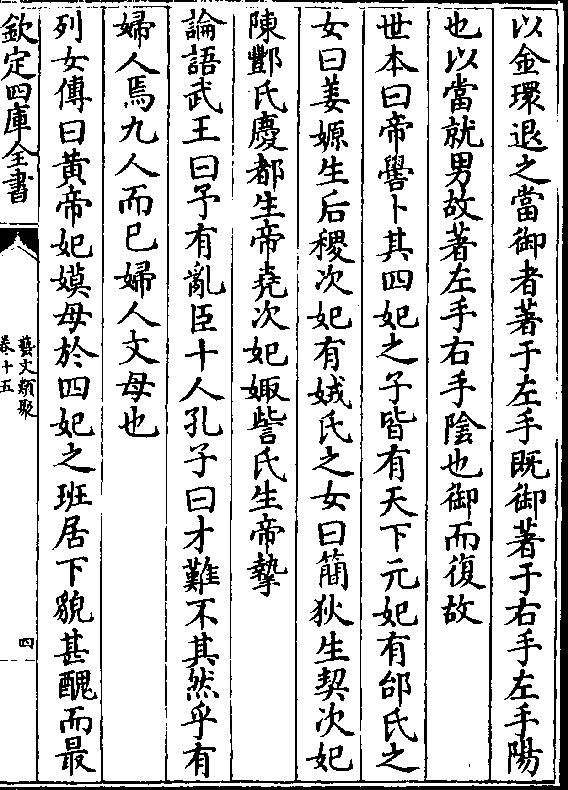 以金環退之當御者著于左手既御著于右手左手陽
也以當就男故著左手右手陰也御而復故
世本曰帝嚳卜其四妃之子皆有天下元妃有邰氏之
女曰姜嫄生后稷次妃有娀氏之女曰簡狄生契次妃
陳酆氏慶都生帝堯次妃娵訾氏生帝摯
論語武王曰予有亂臣十人孔子曰才難不其然乎有
婦人焉九人而已婦人文母也
列女傳曰黃帝妃嫫母於四妃之班居下貌甚醜而最
欽定四庫全書
藝文類聚
卷十五
四